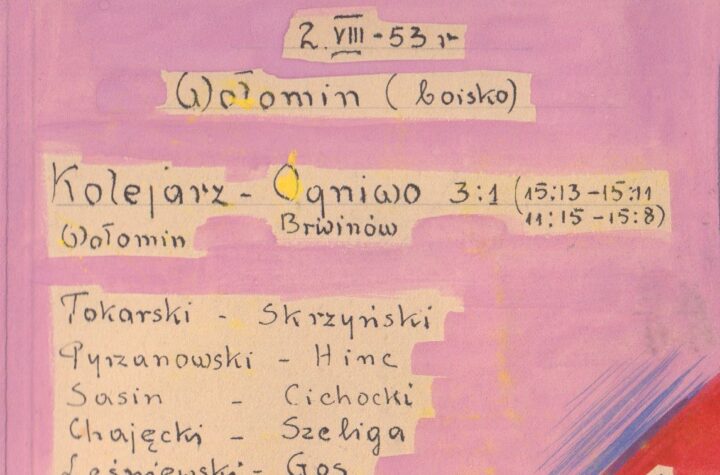 2. VIII - 53 r
Wołomin ( boisko)
Kolejarz - Ogniwo 3:1 (15:13 - 15:11
Wołomin Brwinów 11:15 - 15:8)
Tokarski - Skrzyński
Pyrzanowski - Hinc
Sasin - Cichocki
Chajęcki - Szeliga
Leśniewski - Gos